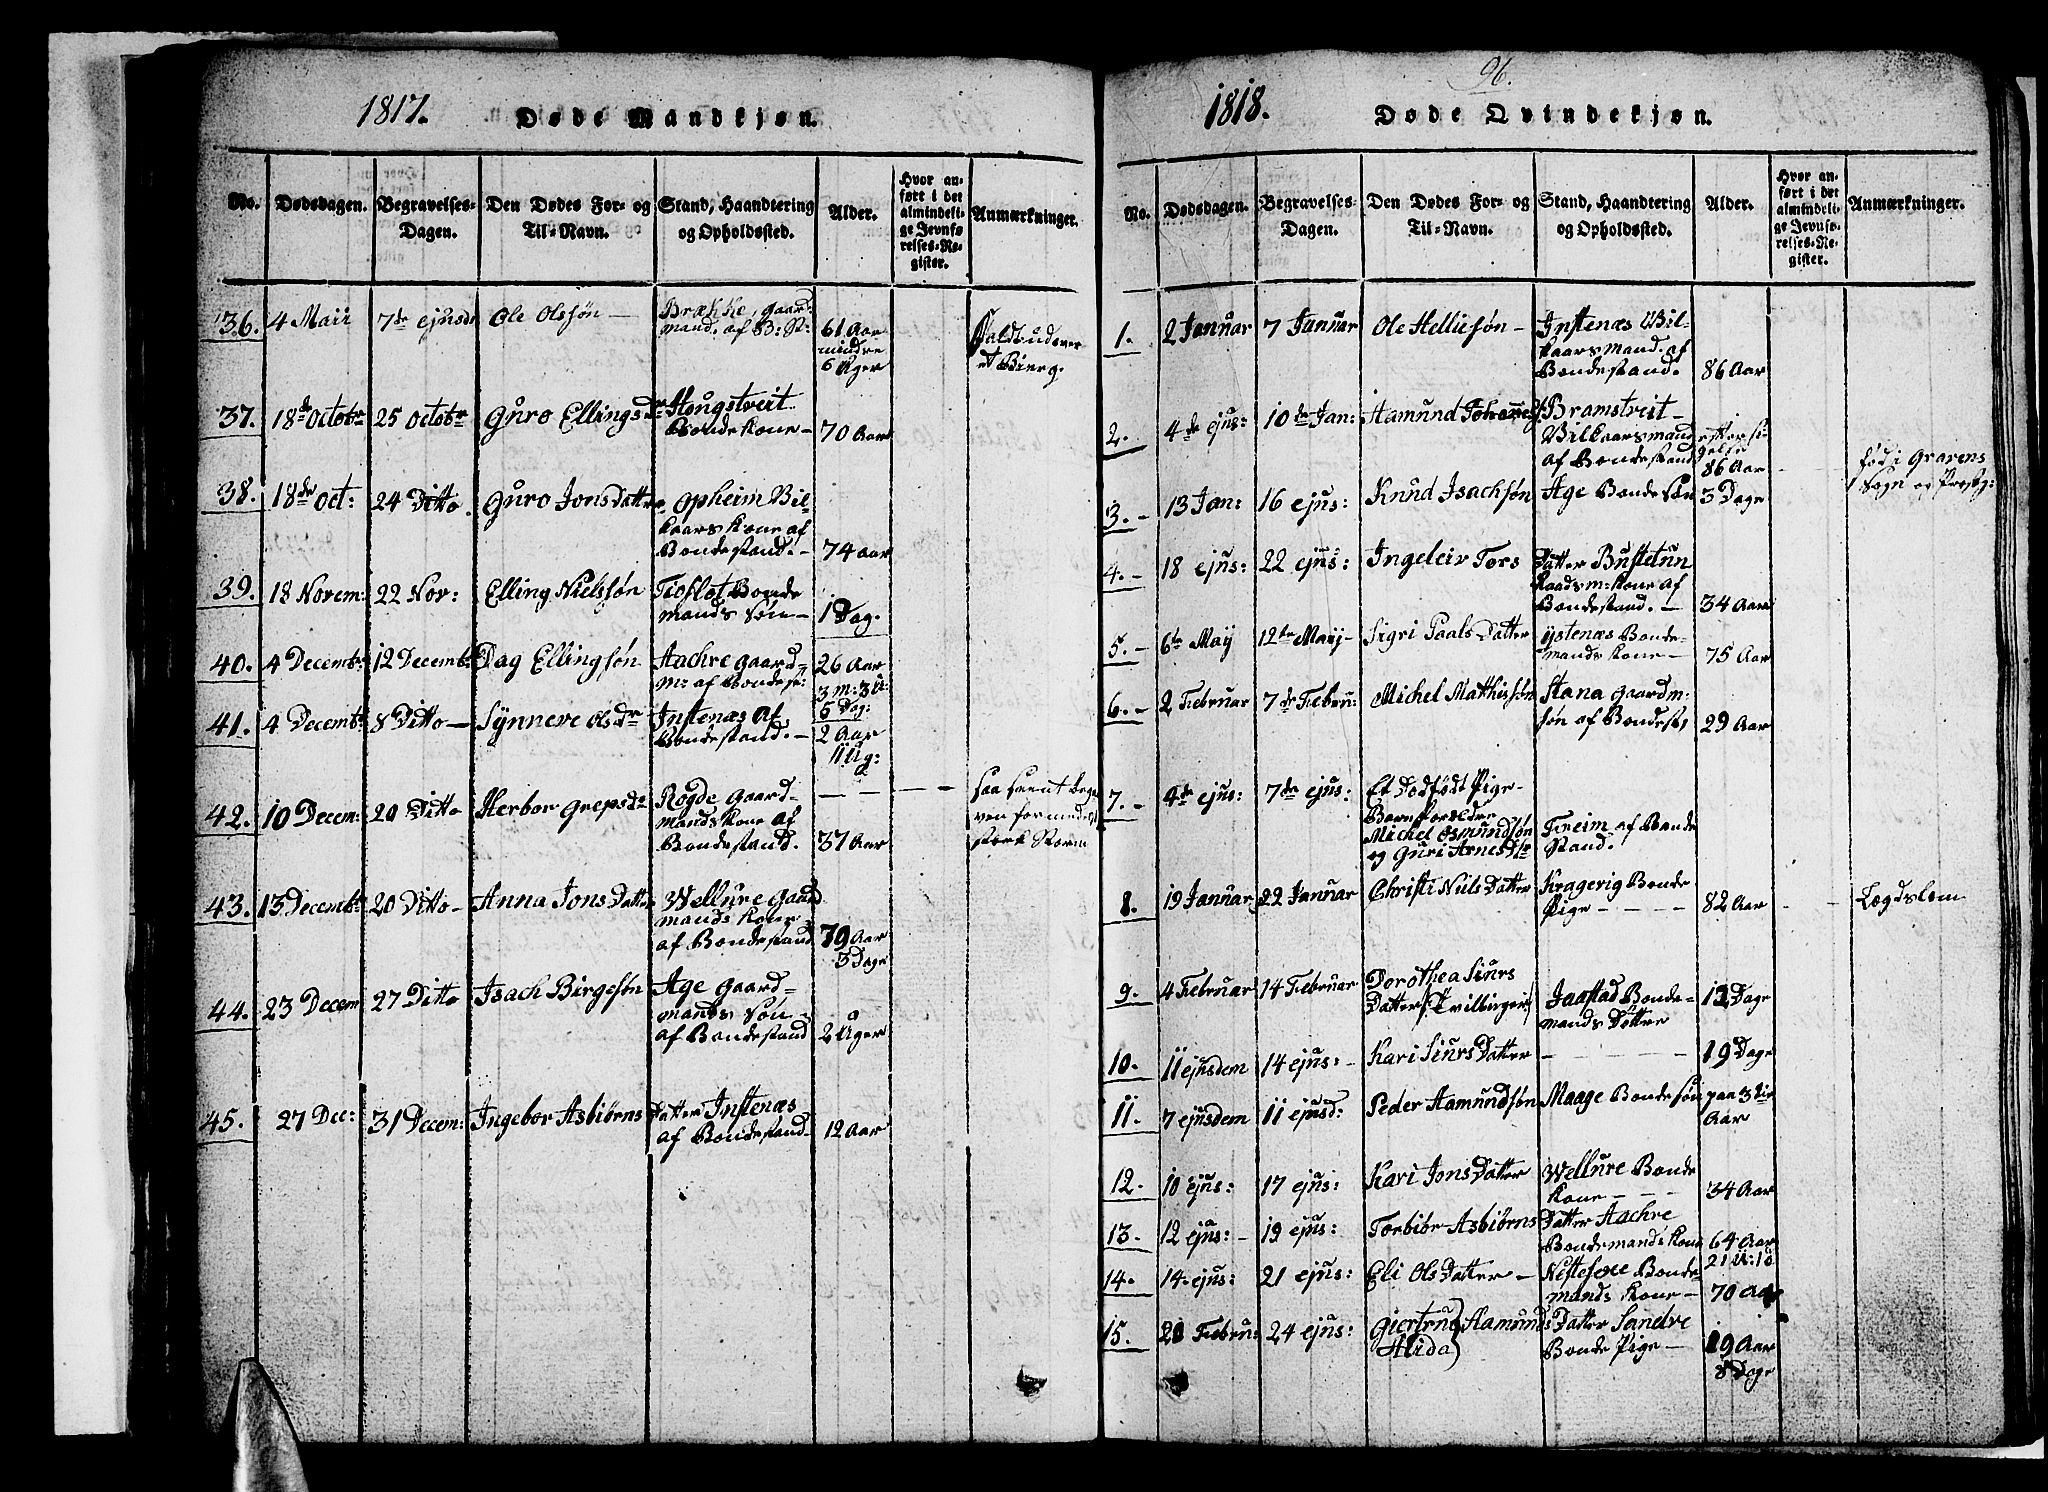 1817.
Døde Mandkjøn.
No.
Dødsdagen.
Begravelses-
Dagen.
Den Dødes For- og
Til-Navn.
Stand, Haandtering
og Opholdssted.
Alder.
Hvor an-
ført i det
almindeli-
ge Jevnfø-
relses-Re-
gister.
Anmærkninger.
36. 4 Maii 7de ejusd: Ole Olssøn — Brække, gaard-
mand, af B: St: 61 Aar
mindre
6 Uger
et Bierg.
37. 18de Octobr 25 Octobr Guro Ellingsdr Hougstveit
Bondekone — 70 Aar
38. 18de Oct: 24 Ditto. Guro Jons Datter Opheim Vil-
kaars Kone af
Bondestand. — 74 Aar
39. 18 Novem: 22 Nov: Elling Nielssøn Tioflot Bonde
mands Søn — 1 Dag.
40. 4 Decembr 12 Decembr Dag Ellingsøn Aachre gaard-
m: af Bondest: 26 Aar
3 m: 3 U:
5 Dag:
41. 4 Decembr 8 Ditto — Synneve Olsdr Instenæs af
Bondestand. — 2 Aar
11 Ug:
42. 10 Decem: 20 Ditto Herbor Grepsdr Rogde gaard-
mands kone af
Bondestand. 37 Aar
saa sent begra
ven formedelst
stærk Storm
43. 13 Decembr 20 Ditto — Anna Jons Datter Wellure gaard
mands kone
af Bondestand 79 Aar
3 Dage
44. 23 Decem 27 Ditto Isach Birgesøn Age gaard-
mands Søn —
af Bondestand 2 Uger
45. 27 Dec: 31 Decem: Ingebor Asbiørns Datter Instenæs
af Bondestand. 12 Aar
96.
1818.
Døde Qvindekjøn.
No.
Dødsdagen.
Begravelses
Dagen.
Den Dødes For- og
Til-Navn.
Stand, Haandtering
og Opholdssted.
Alder.
Hvor an-
ført i det
almindeli-
ge Jevnfø-
relses-Re-
gister.
Anmærkninger.
1. 2 Januar 7 Januar Ole Helliesøn — Instenæs Vil-
kaarsmand. af
Bondestand. 86 Aar
2. 4de ejus: 10de Jan: Aamund Bramstveit —
Vilkaarsmand efter si-
gelse
af Bondestand 86 Aar
fød i Gravens
Sogn og Præstg:
3. — 13 Jan: 16 ejus: Knud Isachsøn Age Bonde Søn 3 Dage
4. — 18 ejus: 22 ejus: Ingeleiv Tors Datter Bustetun
Kaadsm: Kone af
Bondestand. — 34 Aar
5. — 6te May 12te Maij — Sigri Paals Datter ystenæs Bonde-
mands kone — 75 Aar
6. — 2 Februar 7de Febru: Michel Mathissøn Hana gaardm:
søn af Bondest, 29 Aar
7. — 4de ejus: 7de ejus: Et Dødfødt Pige-
Barn Forældre
Michel Osmundsøn Freim af Bonde
og Guri Arnesdtr Stand.
8. 19 Januar 22 Januar Christi Niils Datter Kragerig Bonde
Pige — — — 82 Aar
Lægdslem
9. 4 Februar 14 Februar Dorothea Siurs
Datter (Tvillinger) Jaastad Bonde-
mands Døttre 13 Dage
10. 11 ejusdem 14 ejus: — Kari Siurs Datter — — — 19 Dage
11. 7 ejusdem 11 ejusd: Peder Aamundsøn Maage Bonde søn
Aar
12. 10 ejus: 17 ejus: Kari Jons Datter Wellure Bonde
Kone — — — 34 Aar
13. 12 ejus: — 19 ejus: Torbiør Asbiørns Datter Aachre
Bondemands Kone 64 Aar
14. 14. ejus: 21 ejus: Eli Ols Datter — Bonde-
mands Kone — 70 Aar
15. 20 Februar 24 ejus: Giertrud Aamunds Datter Sandve
Alida) Bonde Pige — 19 Aar
8 Dage